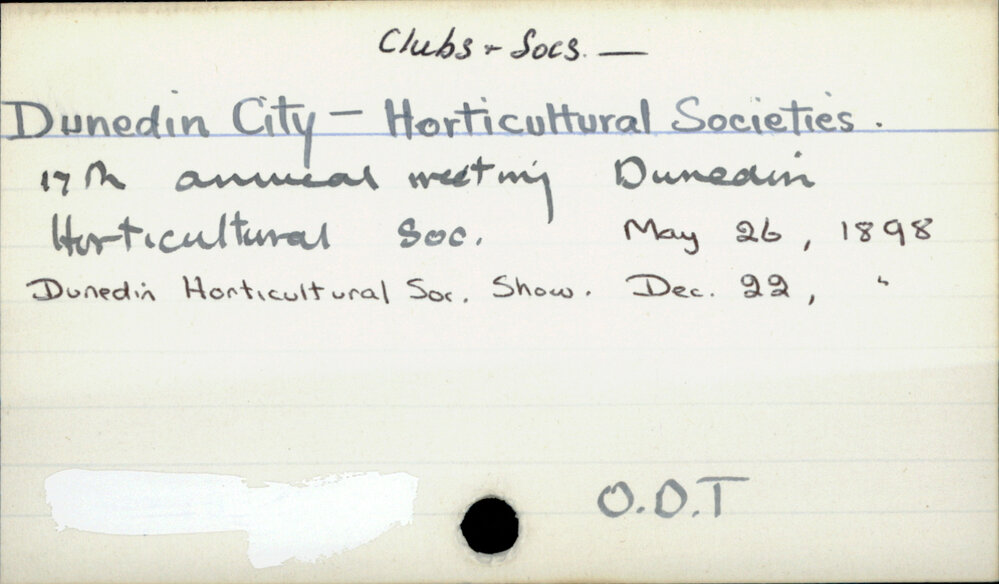 Clubs + Socs. —
Dunedin City - Horticultural Societies.
17th annual meeting Dunedin
Horticultural Soc. May 26, 1898
Dunedin Horticultural Soc. Show. Dec. 22, "
O.D.T